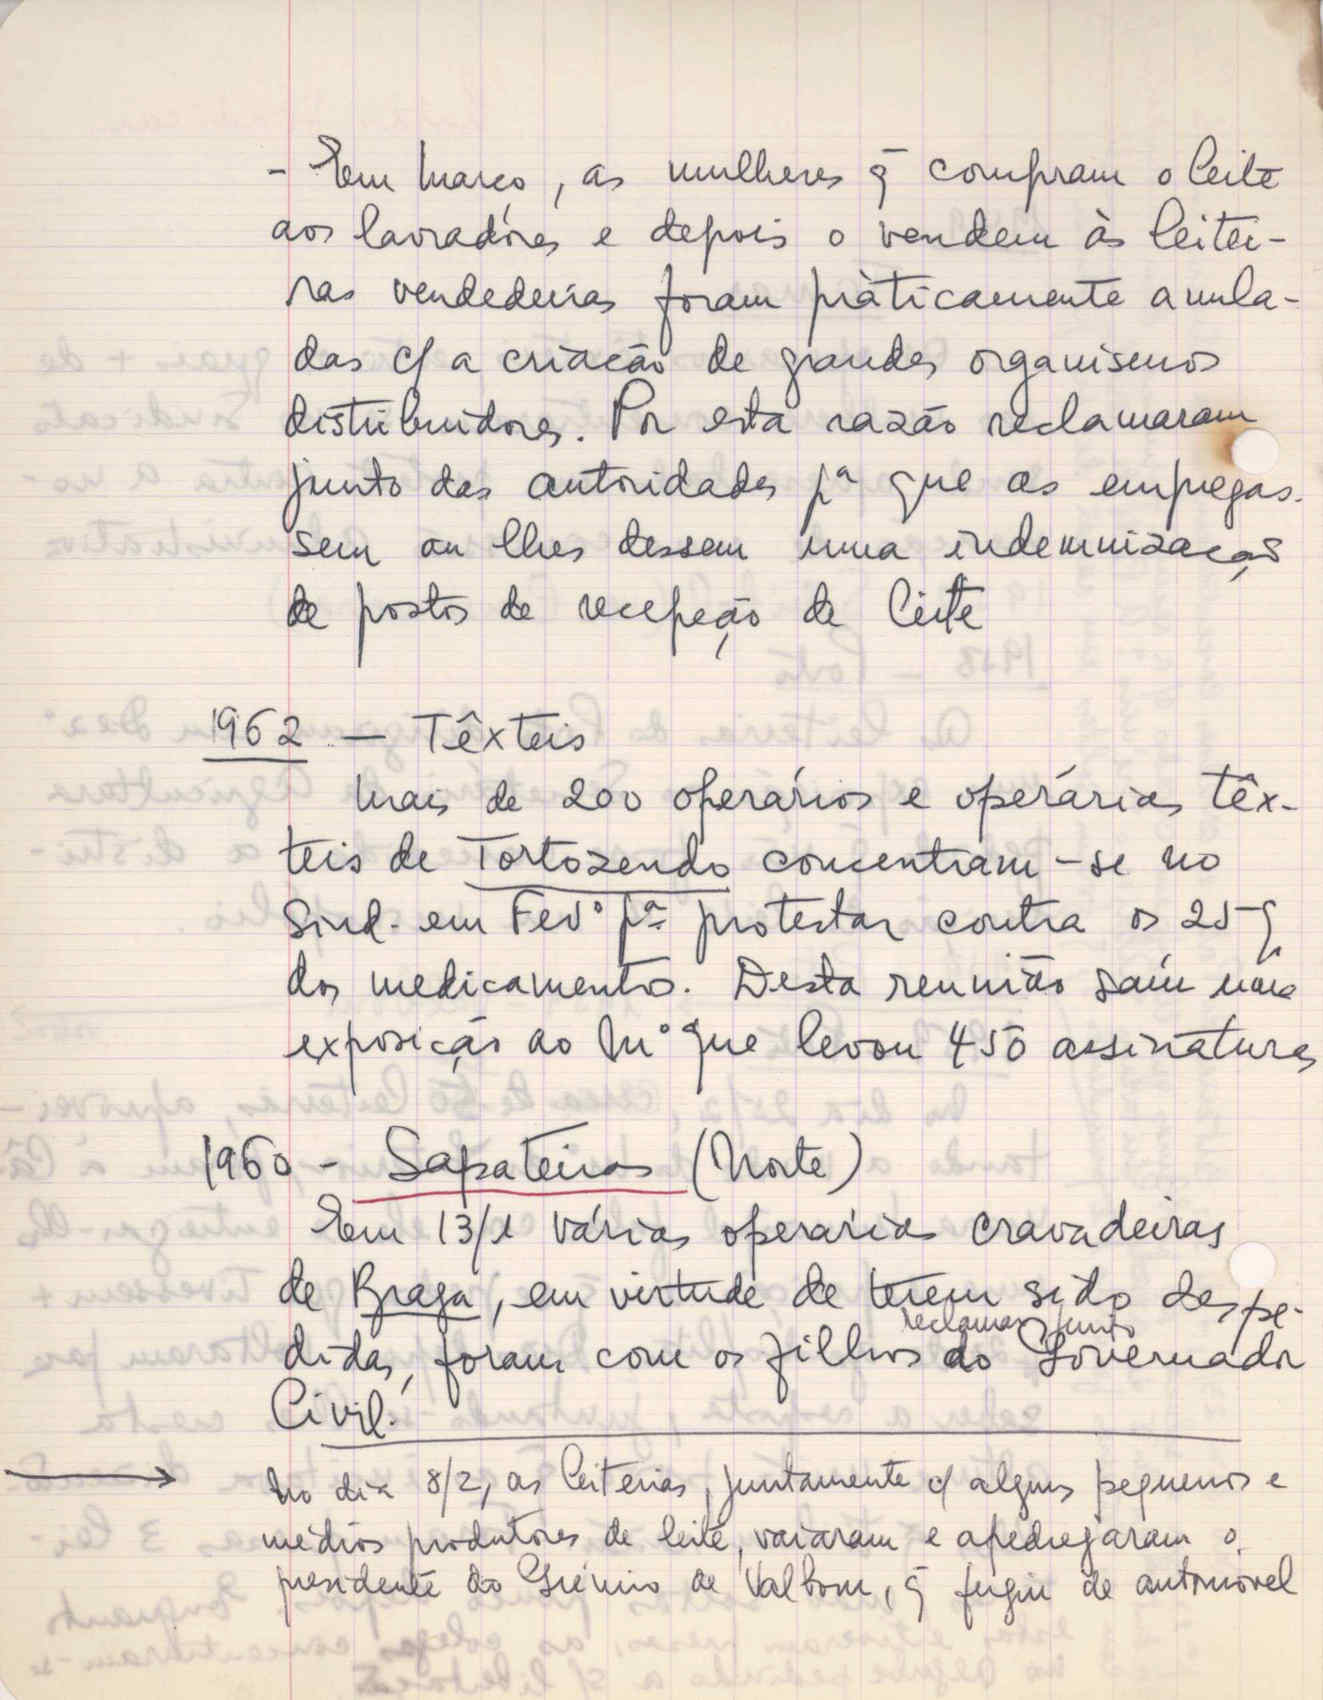 - Em Março, as mulheres q̄ compram o leite
aos lavradóres e depois o vendem às leitei-
ras vendedeiras foram pràticamente anula-
das c/ a criação de grandes organismos
distribuidores. Por esta razão reclamaram
junto das autoridades pª que as empregas-
sem ou lhes dessem uma indemnização
de postos de recepção de leite
1962 - Têxteis
Mais de 200 operários e operárias têx-
teis de Tortozendo concentram-se no
Sind. em Fevº pª protestar contra os 25%
dos medicamentos. Desta reunião saíu uma
exposição ao Mº que levou 450 assinaturas
1960 - Sapateiras (Norte)
Em 13/1 várias operarias cravadeiras
de Braga, em virtude de terem sido despe-
didas, foram com os filhos reclamar junto do Governador
Civil.
→ No dia 8/2, as leiteiras, juntamente c/ alguns pequenos e
médios produtores de leite, vaiaram e apedrejaram o
presidente do Grémio de Valbom, q̄ fugiu de automóvel